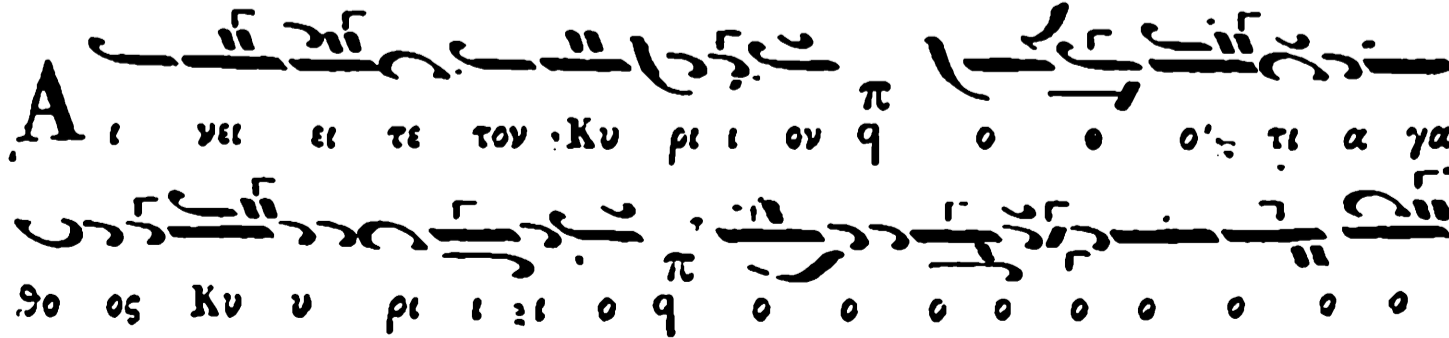 Α ι νει ει τε τον Κυ ρι ι ον π q ο ο ο τι α γα
θο ος Κυ υ ρι ι ι ο π q ο ο ο ο ο ο ο ο ο